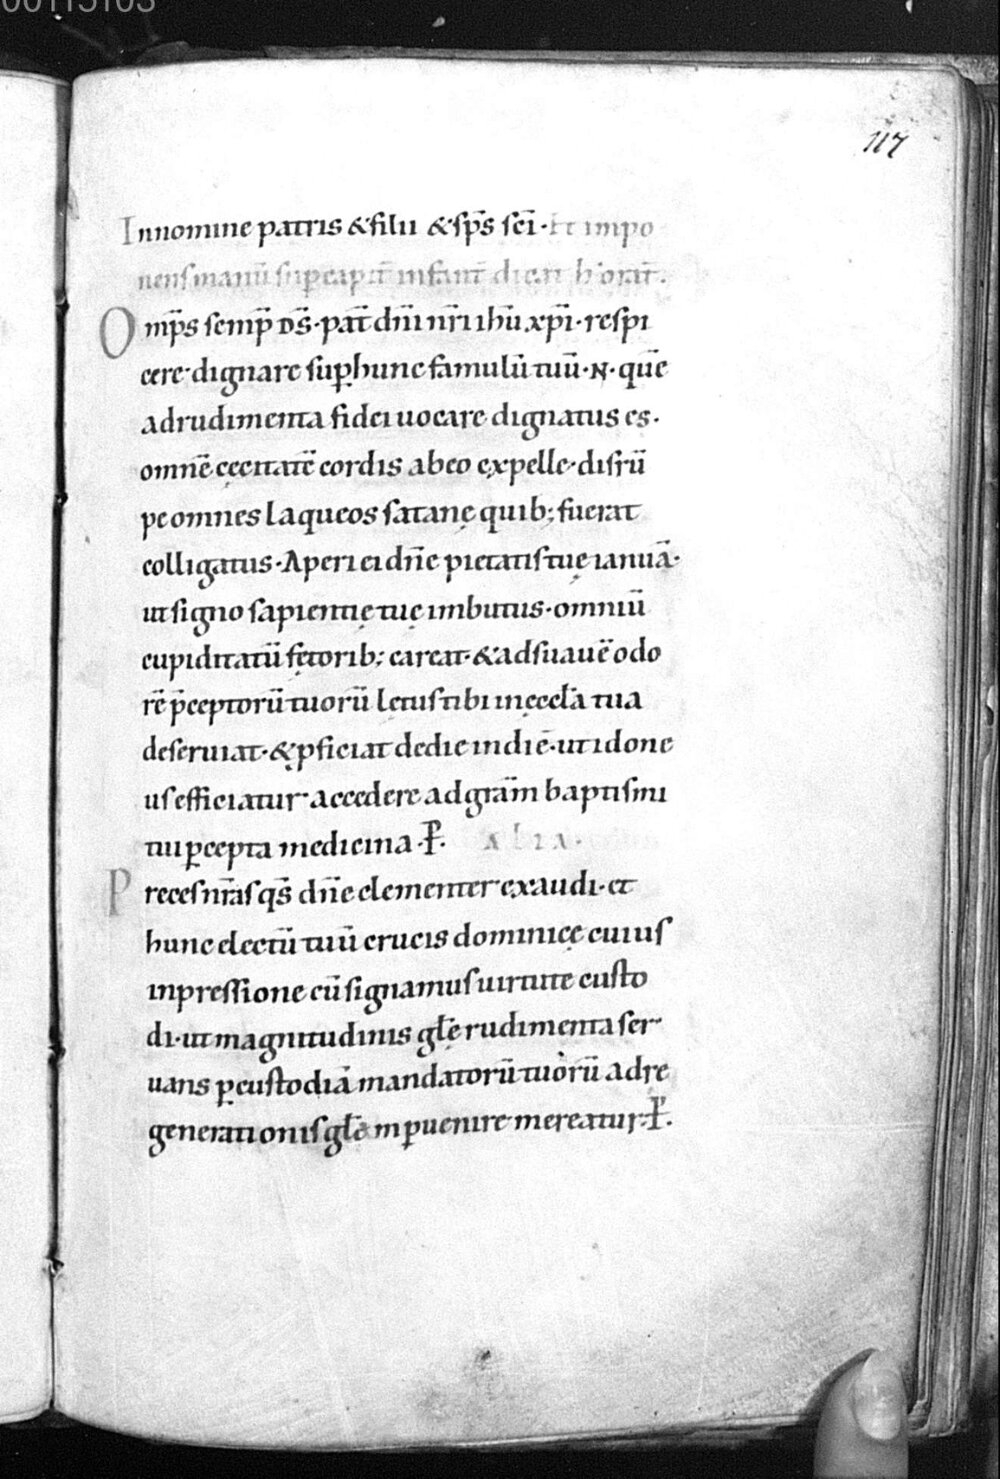 00115103
117
Innomine patris & filii & sp̄s sc̄i · Et impo
nens manū sup̱ capit̄ infant̄ dicat h'orat̄.
Omp̄s semp̄ DS̄ · pat̄ dn̄i nr̄i ihū xp̄i · respi
cere · dignare sup̱ hunc famulū tuū · N · quē
ad rudimenta fidei uocare dignatus es ·
omnē cęcitatē cordis ab eo expelle · disrū
pe omnes laqueos satanę quib; fuerat
colligatus · Aperi ei dn̄e pietatis tuę ianuā ·
ut signo sapientię tuę imbutus · omniū
cupiditatū fętorib; careat · & ad suauē odo
rē p̄ceptorū tuorū letus tibi in ęccl̄a tua
deseruiat · & ꝓficiat de die in diē · ut idone
us efficiatur · accedere ad grām baptismi
tui ꝑcepta medicina · P̄ · ALIA ·
Preces nr̄as qs̄ dn̄e clementer exaudi · et
hunc electū tuū crucis dominicę cuius
inpressione cū signamus uirtute custo
di · ut magnitudinis gl̄ę rudimenta ser
uans ꝑ custodiā mandatorū tuorū ad re
generationis gl̄ę m ꝑuenire mereatur · P̄ ·